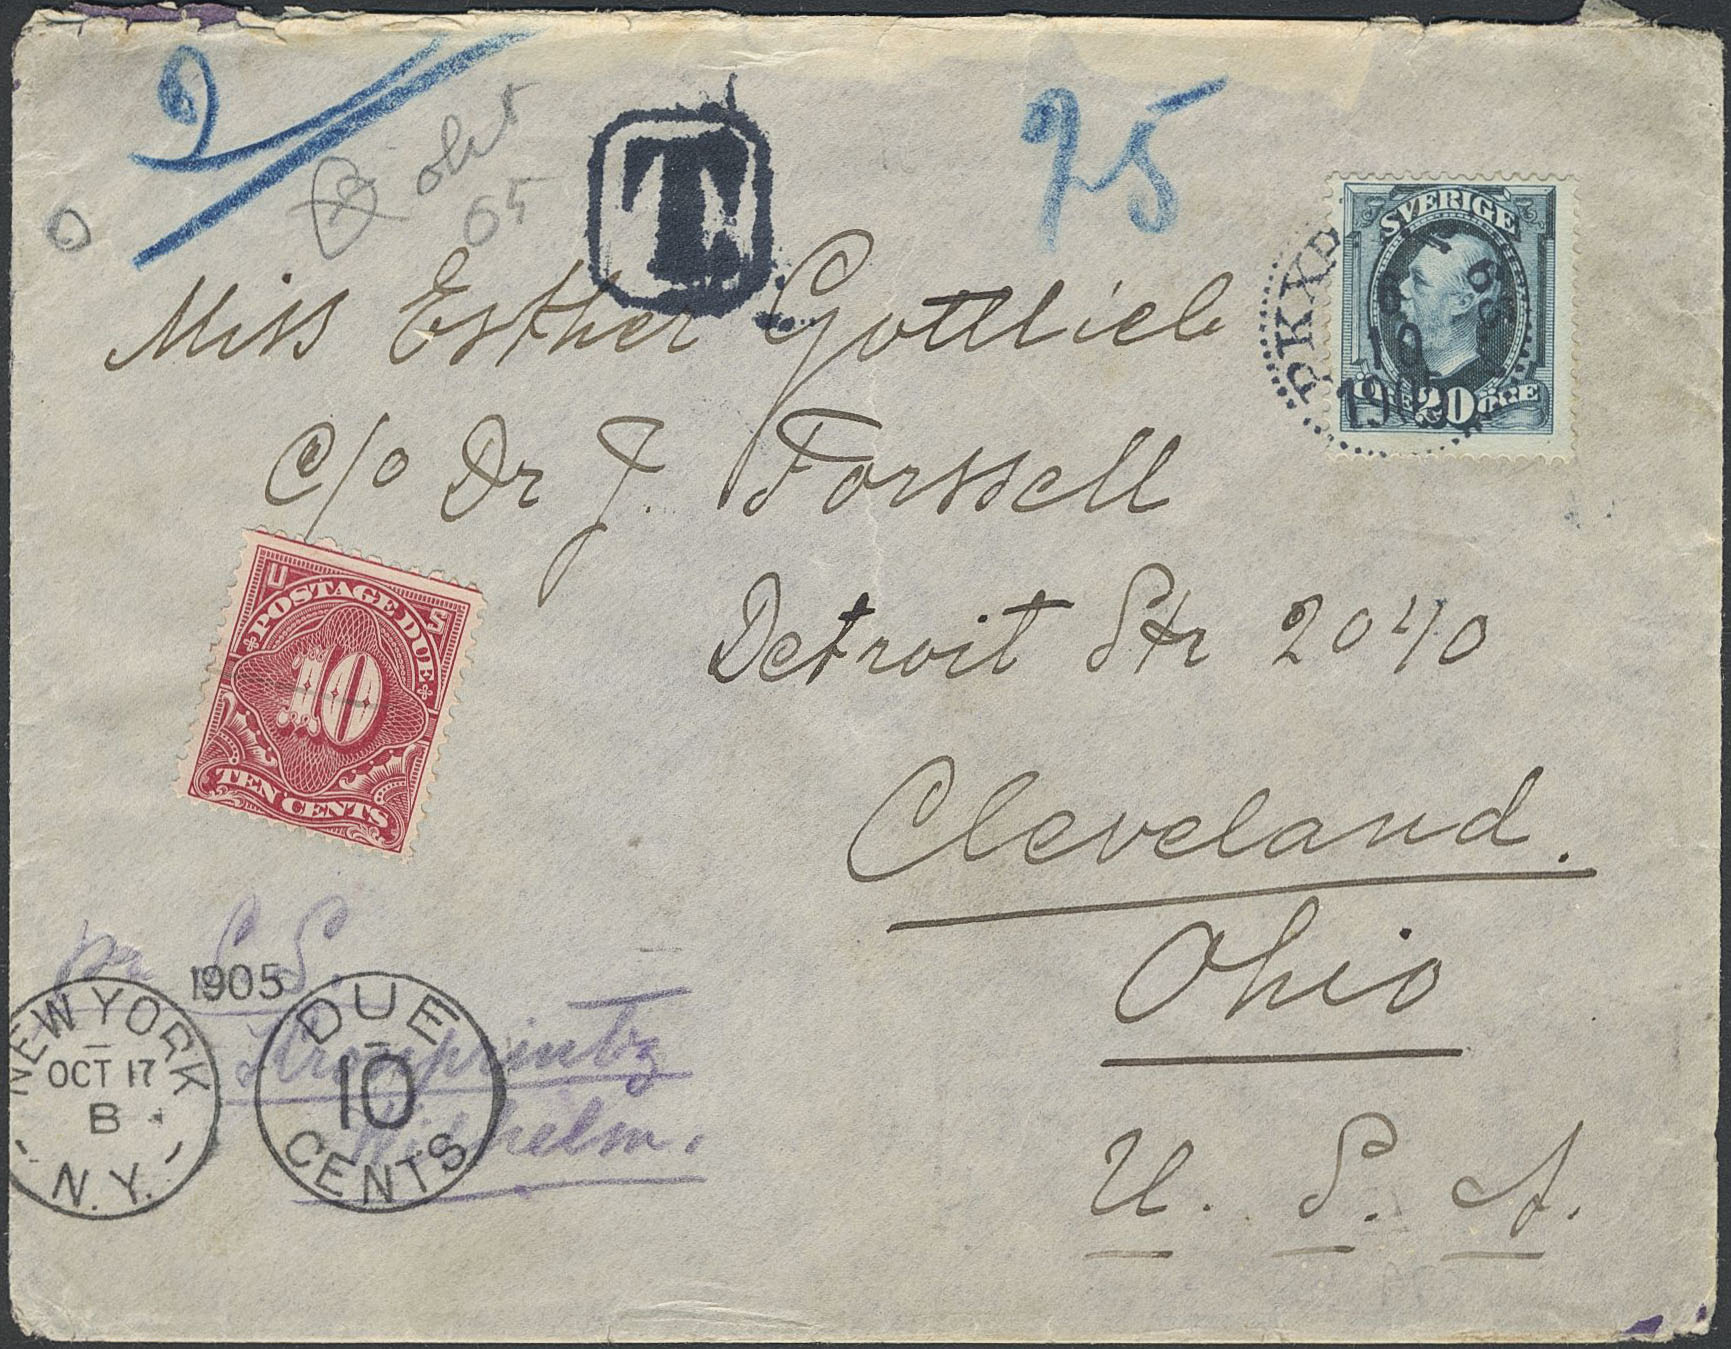 2
25
T
okt
05
0
SVERIGE
PKXP
65
6
10
1905
20 ÖRE
Miss Esther Gottlieb
c/o Dr J. Forssell
Detroit Str 2040
Cleveland.
Ohio
U. S. A.
U S
POSTAGE DUE
10
TEN CENTS
pr S. S.
Kronprintz
Wilhelm.
1905
NEW YORK
OCT 17
B
N.Y.
DUE
10
CENTS